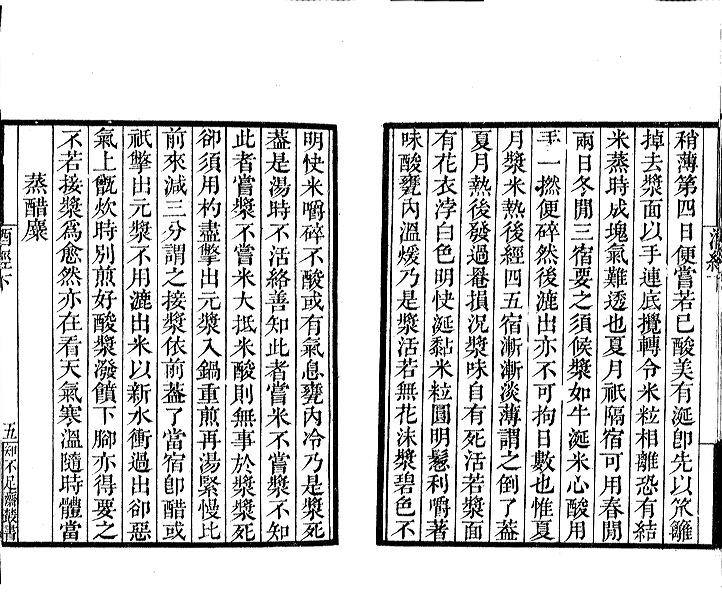 稍薄第四日便嘗若已酸美有涎即先以笊籬
掉去漿面以手連底攪轉令米粒相離恐有結
米蒸時成塊氣難透也夏月祇隔宿可用春閒
兩日冬閒三宿要之須候漿如牛涎米心酸用
手一撚便碎然後漉出亦不可拘日數也惟夏
月漿米熱後經四五宿漸漸淡薄謂之倒了葢
夏月熱後發過罨損況漿味自有死活若漿面
有花衣浡白色明快涎黏米粒圓明鬆利嚼著
味酸甕內溫煖乃是漿活若無花沫漿碧色不
明快米嚼碎不酸或有氣息甕內冷乃是漿死
葢是湯時不活絡善知此者嘗米不嘗漿不知
此者嘗漿不嘗米大抵米酸則無事於漿漿死
卻須用杓盡擎出元漿入鍋重煎再湯緊慢比
前來減三分謂之接漿依前葢了當宿即醋或
祇擎出元漿不用漉出米以新水衝過出卻惡
氣上甑炊時別煎好酸漿潑饋下腳亦得要之
不若接漿為愈然亦在看天氣寒溫隨時體當
蒸醋糜
酒經下
五
知不足齋叢書